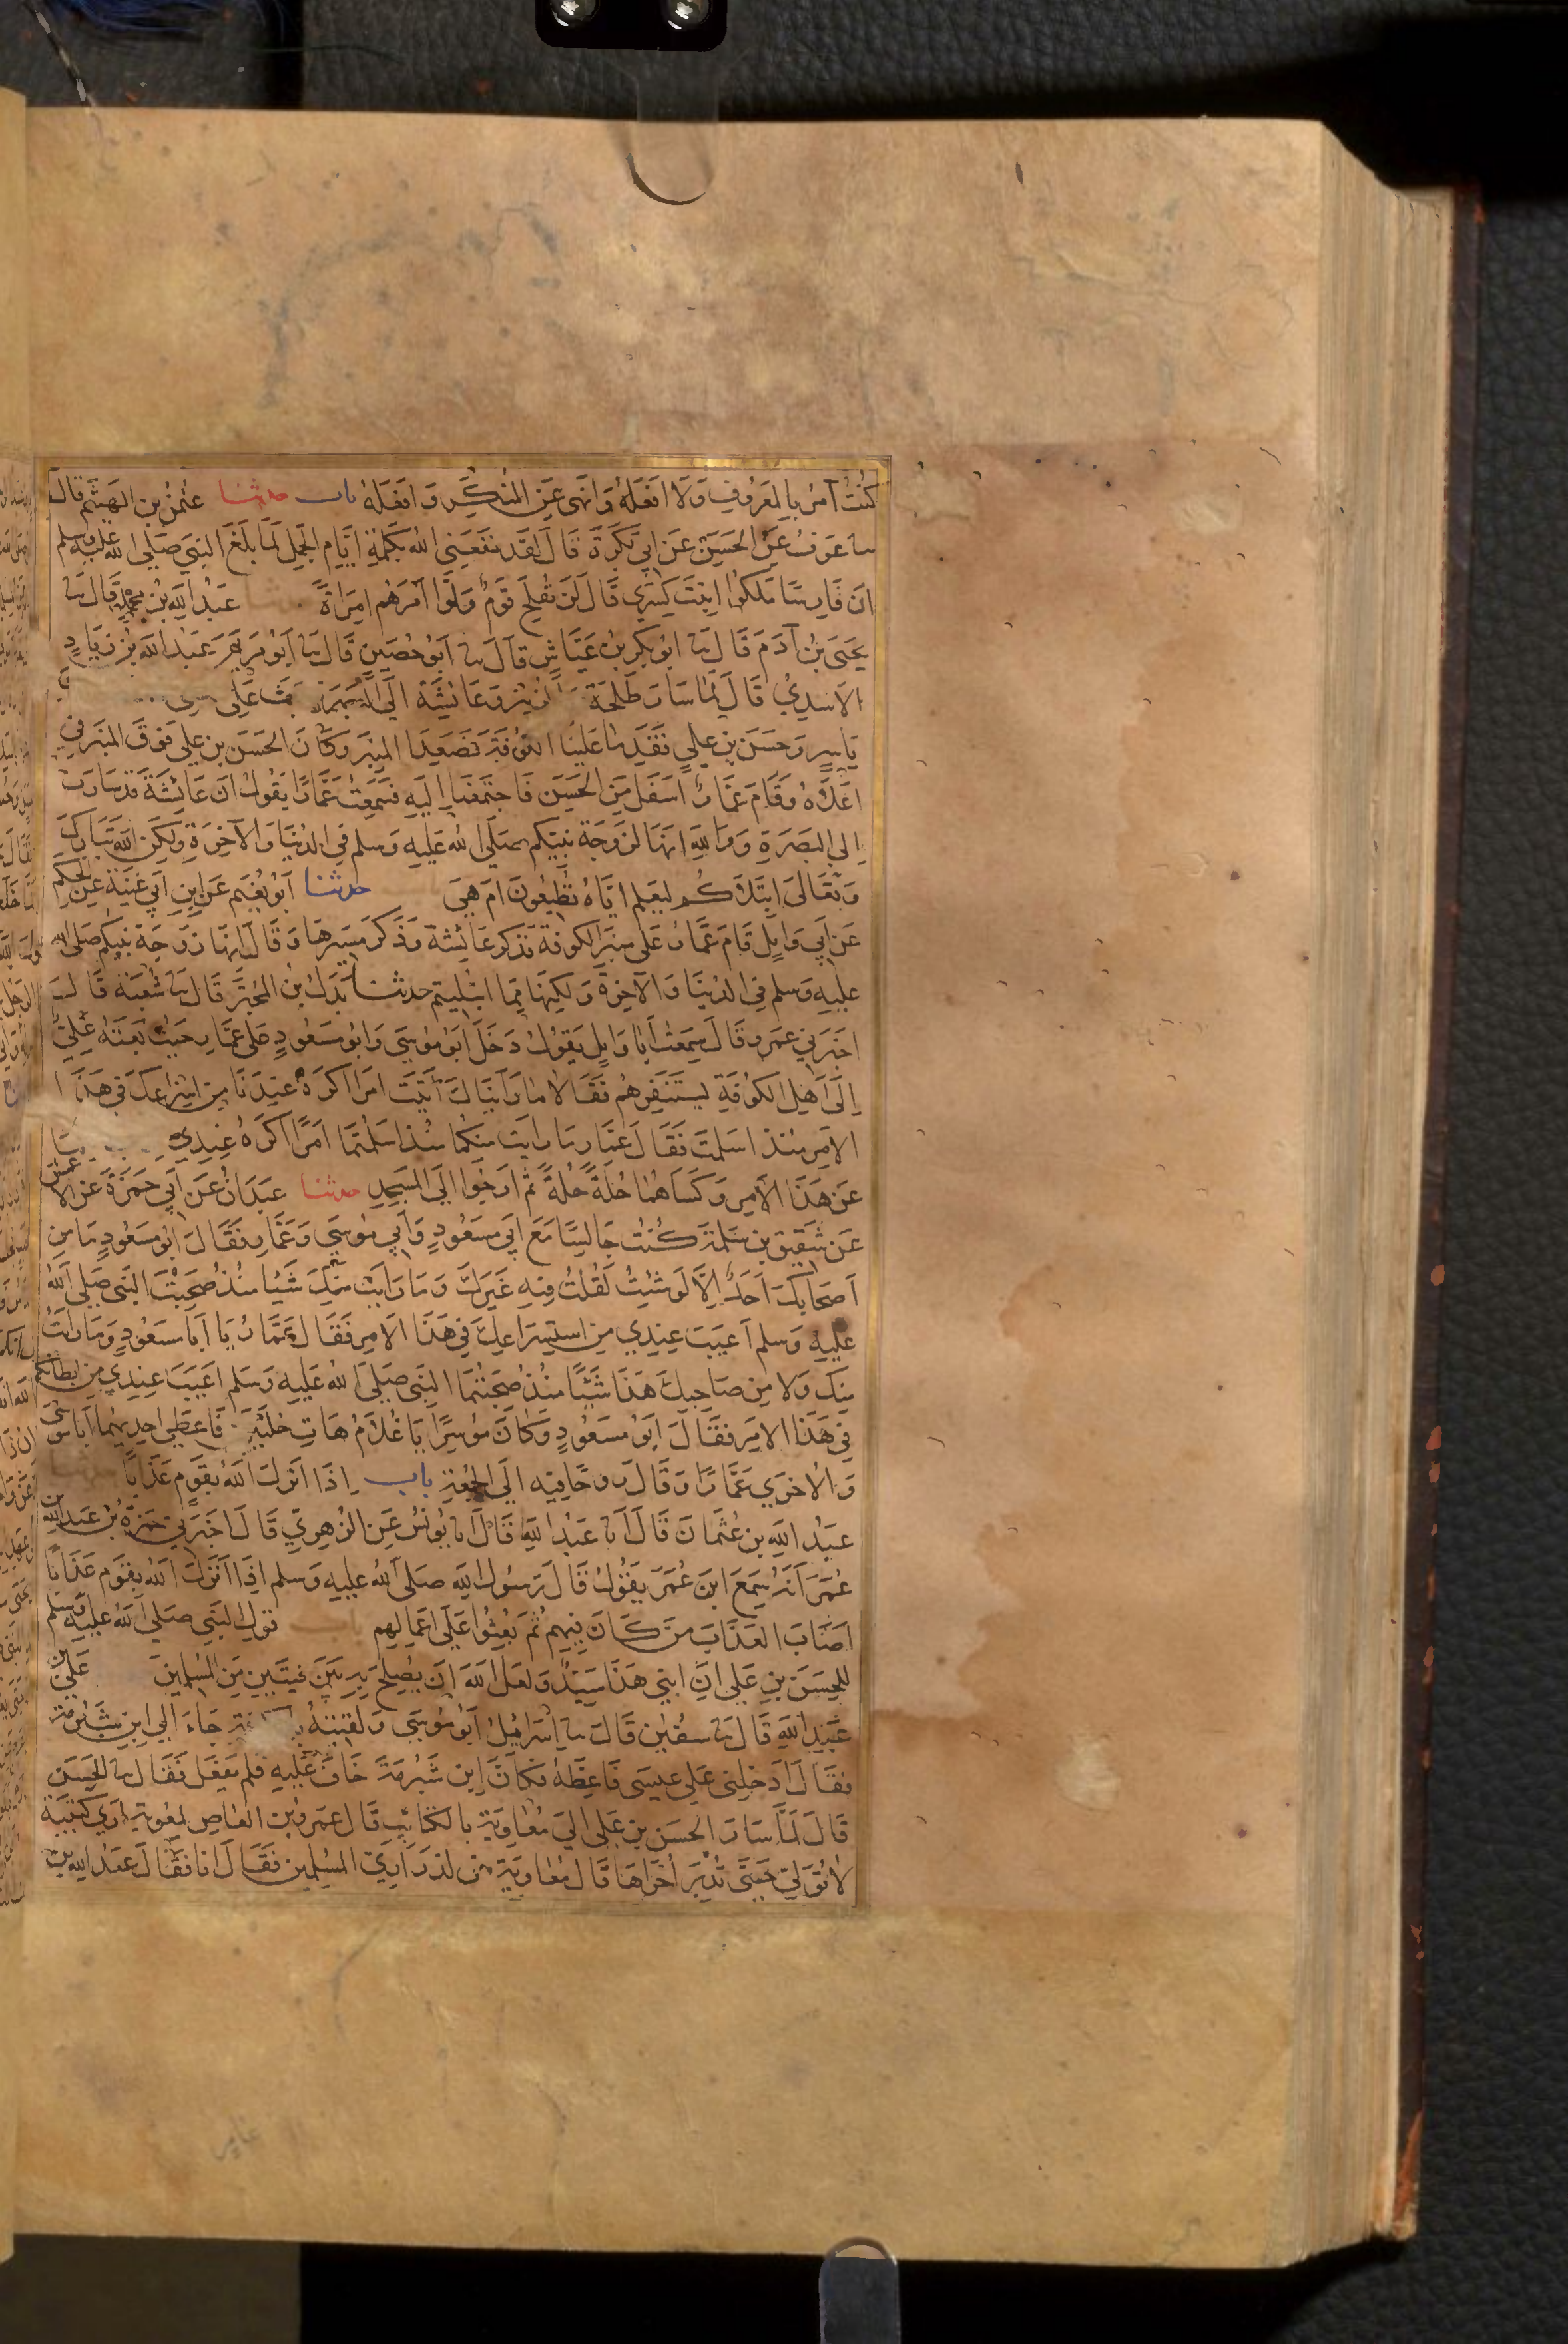 كنت آمر بالمعروف ولا افعله وانهى عن المنكر وافعله باب حدثنا عثمن بن الهيثم قال
سا عوف عن الحسن عن ابي بكرة قال لقد نفعني الله بكلمة ايام الجمل لما بلغ النبي صلى الله عليه وسلم
ان فارسا ملكوا ابنت كسرى قال لن يفلح قوم ولوا امرهم امراة عبد الله بن محمد قال سا
يحيى بن آدم قال سا ابو بكر بن عياش قال سا ابو حصين قال سا ابو مريم عبد الله بن زياد
الاسدي قال لما سار طلحة وعائشة الى البصرة بعث علي
ياسر وحسن بن علي فقدما علينا الكوفة فصعدا المنبر وكان الحسن بن علي فوق المنبر في
اعلاه وقام عمار اسفل من الحسن فاجتمعنا اليه فسمعت عمارا يقول ان عائشة قد سارت
الى البصرة ووالله انها لزوجة نبيكم صلى الله عليه وسلم في الدنيا والآخرة ولكن الله تبارك
وتعالى ابتلاكم ليعلم اياه تطيعون ام هي حدثنا ابو نعيم عن ابن ابي غنية عن الحكم
عن ابي وايل قام عمار على منبر الكوفة فذكر عائشة وذكر مسيرها وقال انها زوجة نبيكم صلى الله
عليه وسلم في الدنيا والآخرة ولكنها مما ابتليتم حدثنا بدل بن المحبر قال سا شعبة قال
اخبرني عمرو قال سمعت ابا وايل يقول دخل ابو موسى وابو مسعود على عمار حيث بعثه علي
الى اهل الكوفة ليستنفرهم فقالا ما رايناك اتيت امرا اكره عندنا من اسراعك في هذا ا
الامر منذ اسلمت فقال عمار ما رايت منكما منذ اسلمتما امرا اكره عندي
عن هذا الامر وكساهما حلة حلة ثم ارحوا الى المسجد حدثنا عبدان عن ابي حمزة عن الاعمش
عن شقيق بن سلمة كنت جالسا مع ابي مسعود وابي موسى وعمار فقال ابو مسعود ما من
اصحابك احد الا لو شئت لقلت فيه غيرك وما رايت منك شيئا منذ صحبت النبي صلى الله
عليه وسلم اعيب عندي من استسراعك في هذا الامر فقال عمار يا ابا مسعود وما رايت
منك ولا من صاحبك هذا شيئا منذ صحبتما النبي صلى الله عليه وسلم اعيب عندي من ابطائكما
في هذا الامر فقال ابو مسعود وكان موسرا يا غلام هات حلتين فاعطى احديهما ابا موسى
والاخرى عمارا وقال روحا فيه الى الجمعة باب اذا انزل الله بقوم عذابا حدثنا
عبد الله بن عثمان قال انا عبد الله قال انا يونس عن الزهري قال اخبرني حمزة بن عبد الله بن
عمر انه سمع ابن عمر يقول قال رسول الله صلى الله عليه وسلم اذا انزل الله بقوم عذابا
اصاب العذاب من كان فيهم ثم بعثوا على اعمالهم باب قول النبي صلى الله عليه وسلم
للحسن بن علي ان ابني هذا سيد ولعل الله ان يصلح به بين فيتين من المسلمين علي بن
عبد الله قال سا سفين قال سا اسرائيل ابو موسى ولقيته جاء الى ابن شبرمة
فقال ادخلني على عيسى فاعظه فكان ابن شبرمة خاف عليه فلم يفعل فقال سا الحسن
قال لما سار الحسن بن علي الى معاوية بالكتائب قال عمرو بن العاص لمعوية ارى كتيبة
لا تولي حتى تدبر اخراها قال معاوية من لذراري المسلمين فقال انا فقال عبد الله بن